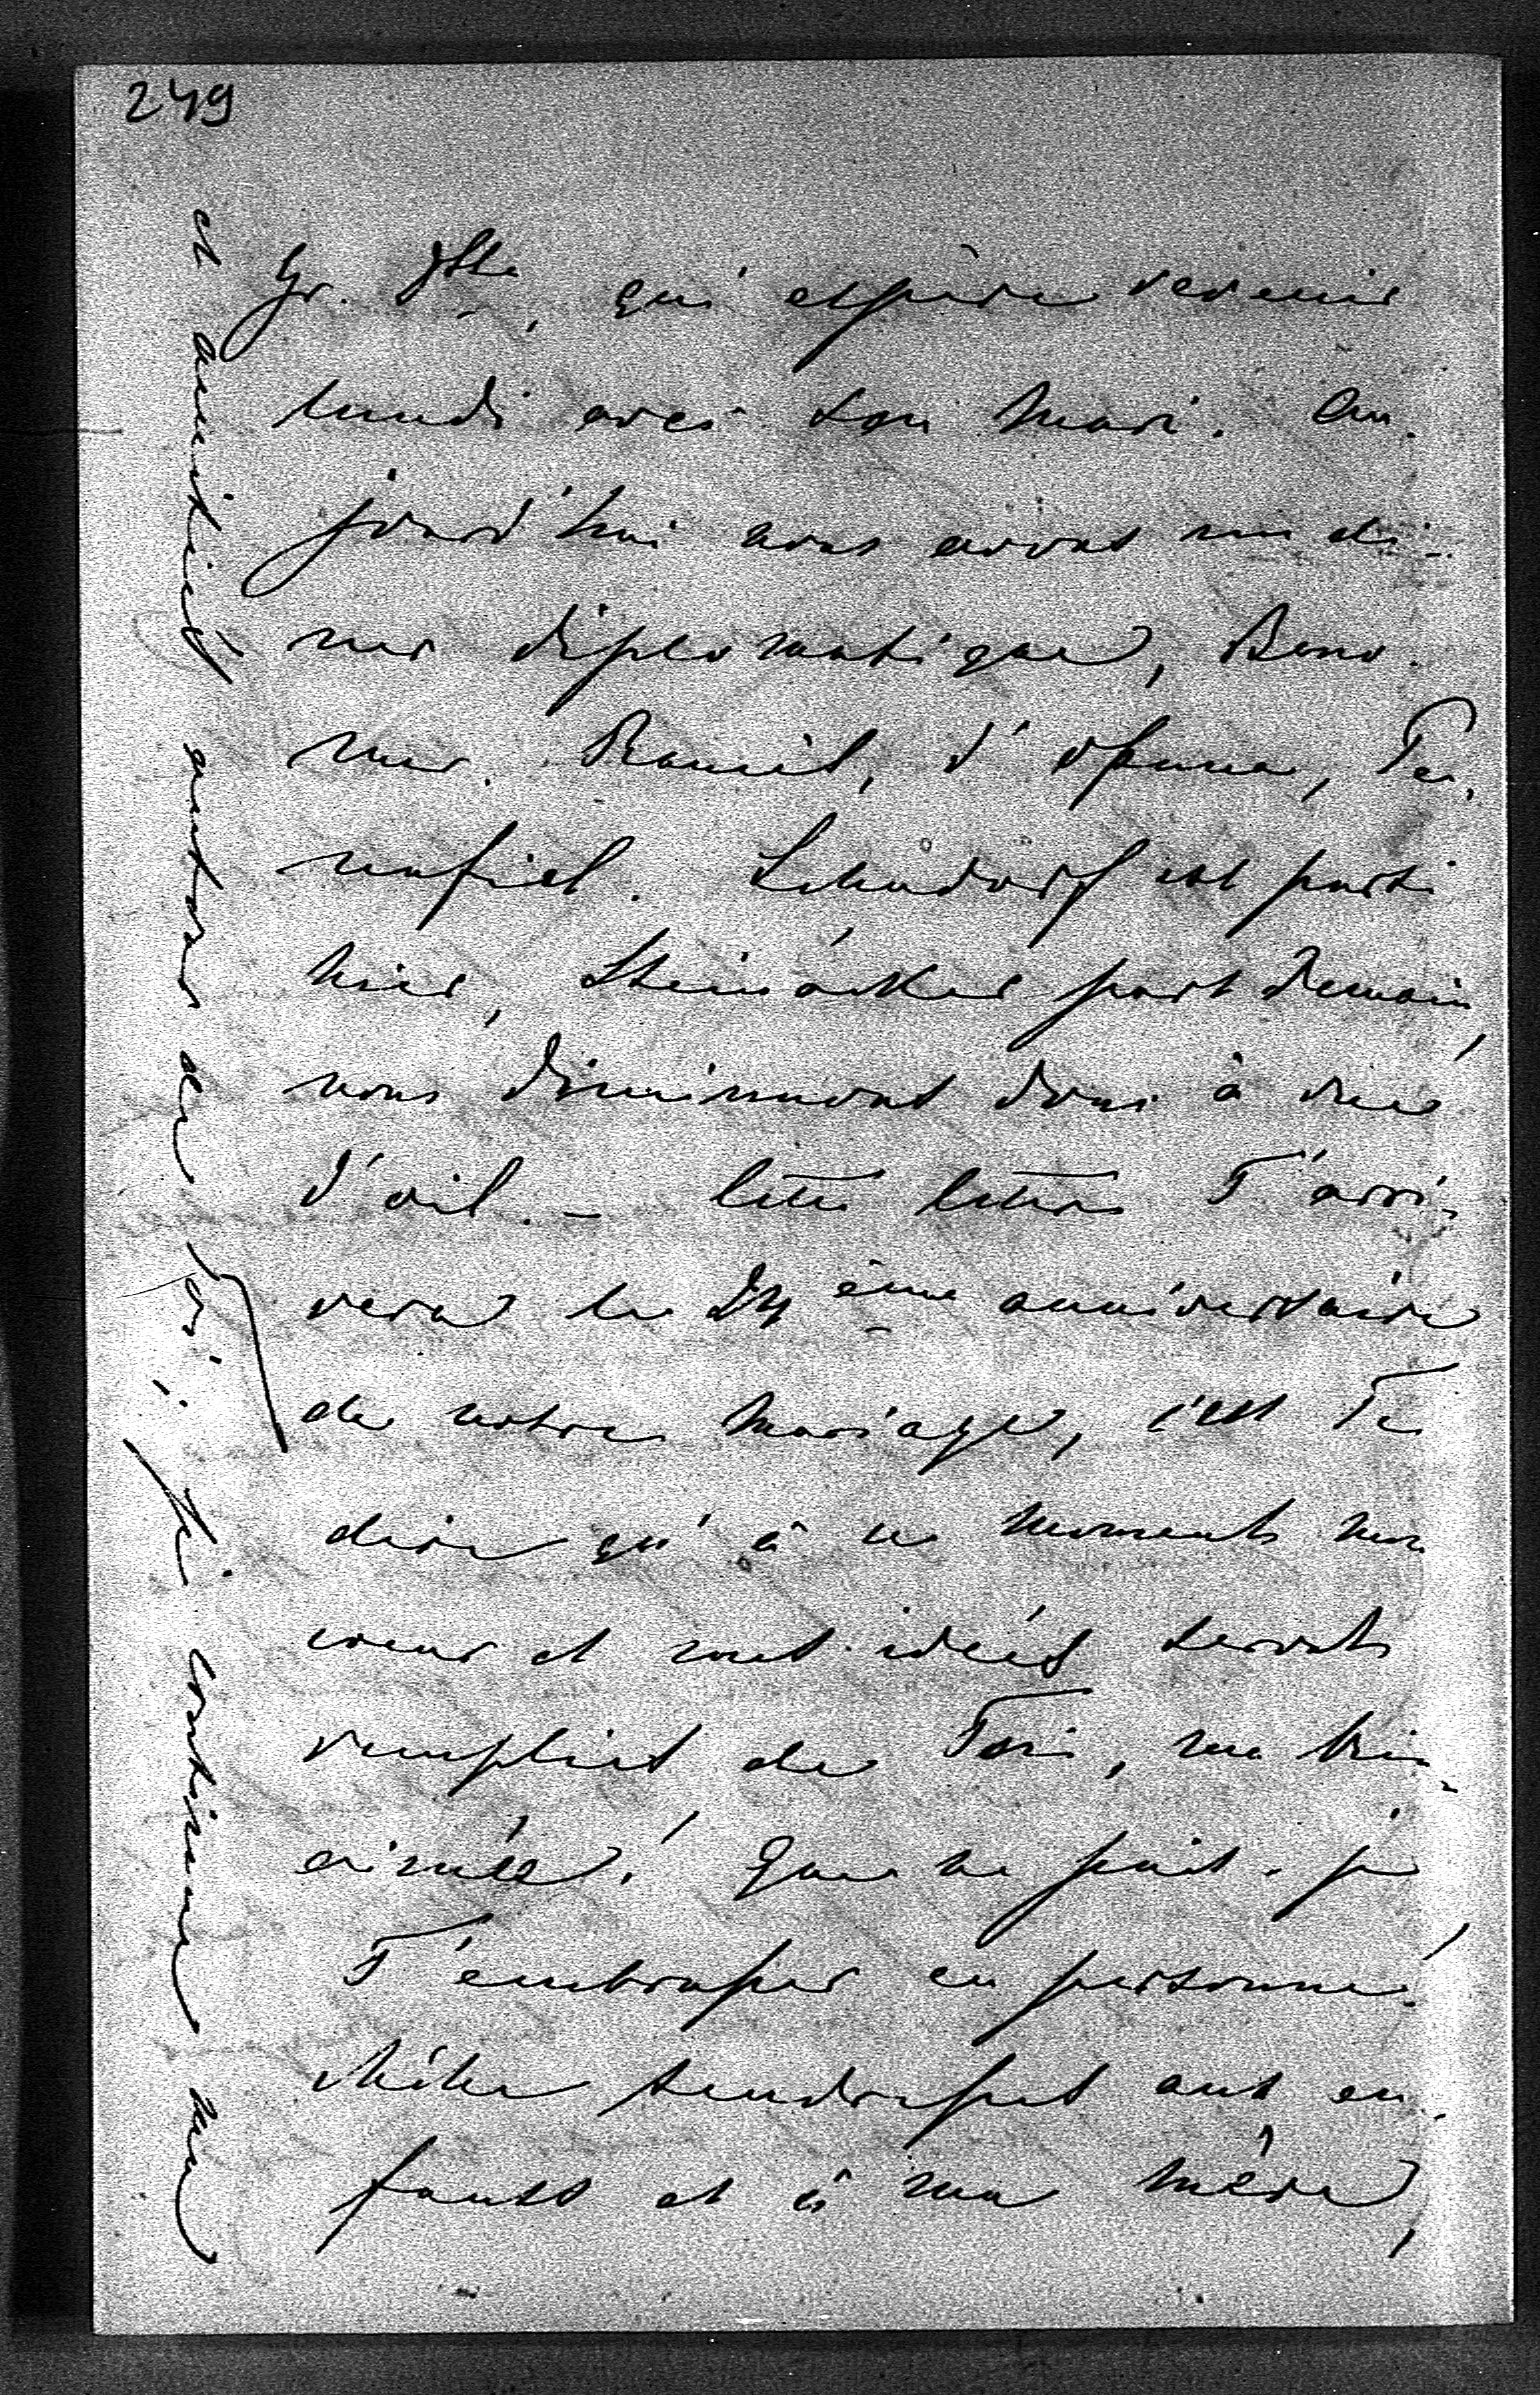 249
Gr. Dsse, qui espère revenir
lundi avec son mari. Au-
jourd'hui nous avons un dî-
ner diplomatique,
d'Osuna, Pe-
nafiel. Lehndorf est parti
hier, Steinäcker part demain,
nous diminuons donc à vue
d'œil. – Cette lettre T'arri-
vera le 24ème anniversaire
de notre mariage, c'est Te
dire qu'à ce moment mon
cœur et mes idées seront
remplies de Toi, ma bien-
aimée! Que ne puis-je
T'embrasser en personne!
Mille tendresses aux en-
fants et à ma mère,
et amitiés autour de Toi. Je continue ma